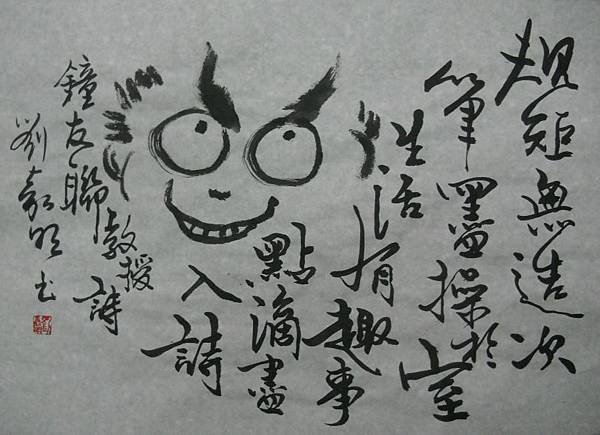 規矩無造次
筆墨操於室
生活有趣事
點滴盡
入詩
鐘友聯教授詩
劉嘉明書